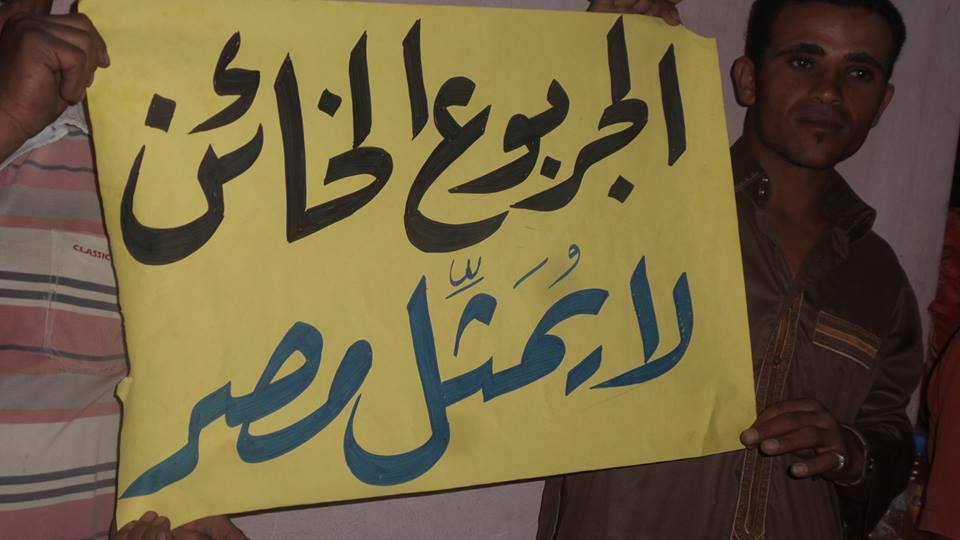 الجربوع الخائن
لا يُمَثِّل مصر
CLASSIC